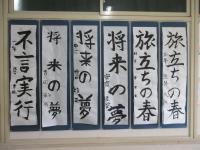 旅立ちの春
旅立ちの春
将来の夢
将来の夢
将来の夢
不言実行